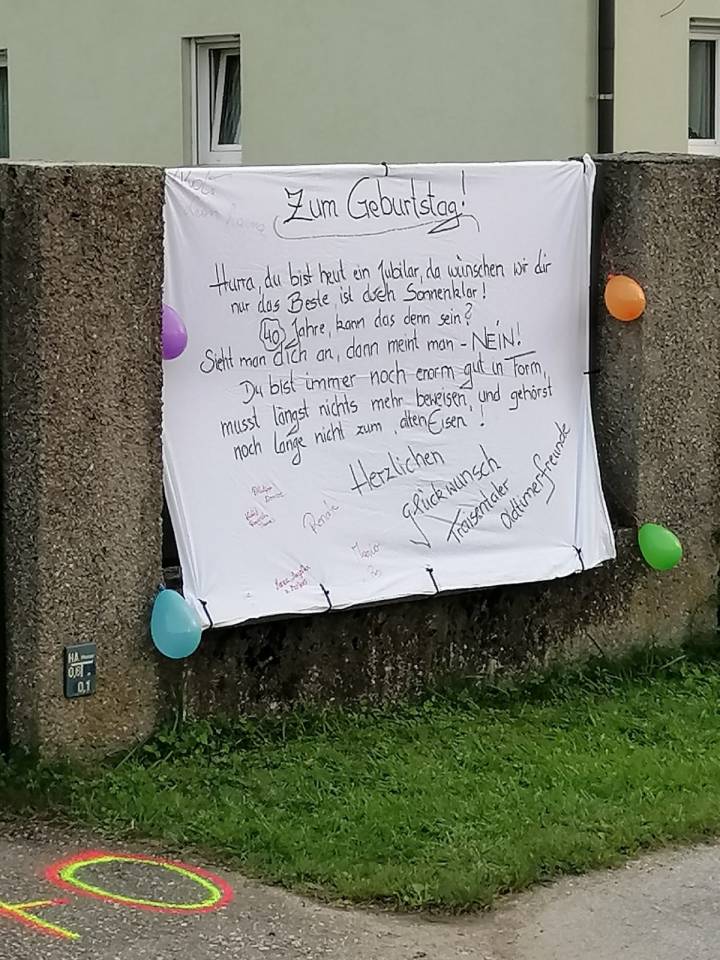 Zum Geburtstag!
Hurra, du bist heut ein Jubilar, da wünschen wir dir
nur das Beste ist doch Sonnenklar!
40 Jahre, kann das denn sein?
Sieht man dich an, dann meint man - NEIN!
Du bist immer noch enorm gut in Form,
musst längst nichts mehr beweisen, und gehörst
noch lange nicht zum "alten Eisen"!
Herzlichen
Glückwunsch
Traisentaler
Oldtimerfreunde
Renate
HA
0,6
0,1
40